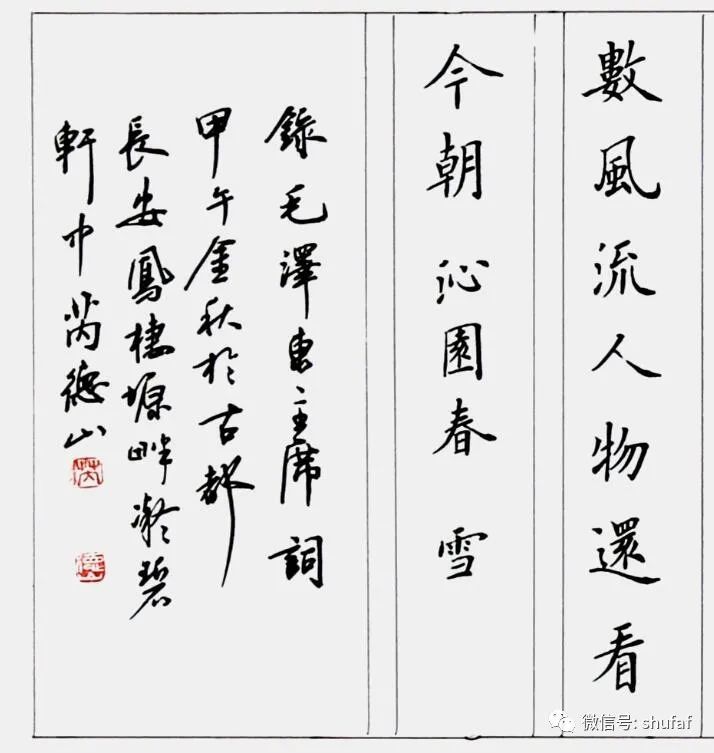 數風流人物還看
今朝 沁園春 雪
錄毛澤東主席詞
甲午金秋於古都
長安鳳棲塬畔凝碧
軒中芮德山
微信号: shufaf